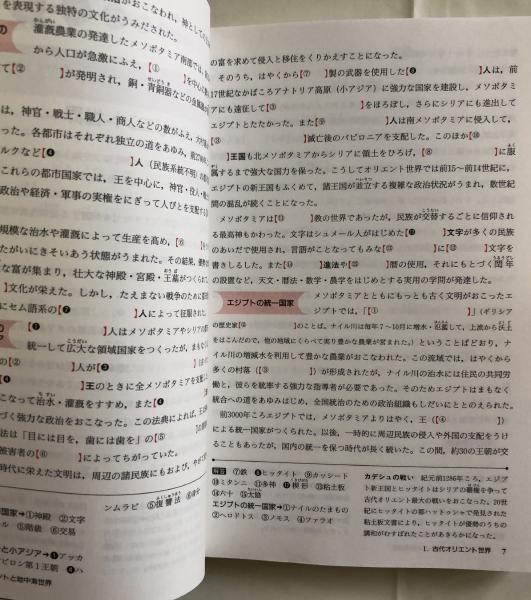 を表現する独特の文化がうみだされた。
灌漑農業の発達したメソポタミア南部では、前
から人口が急激にふえ、【①
】を中心
て【②　】が発明され、銅・青銅器などの金属器
は、神官・戦士・職人・商人などの数がふえ、大
った。各都市はそれぞれ独立の道をあゆみ、前27
ルクなど【④　】人(民族系統不明)の
これらの都市国家では、王を中心に、神官・役人・戦士
政治や経済・軍事の実権をにぎって人びとを支配する
規模な治水や灌漑によって生産を高め、【⑥
たがいにきそいあう状態がうまれた。その結果、優勢
な富が集まり、壮大な神殿・宮殿・王墓がつくられ
】文化が栄えた。しかし、たえまない戦争のために
にセム語系の【❼　】人によって征服された。
【❶　】人はメソポタミアやシリアの都
統一して広大な領域国家をつくったが、まもな
【②　】人が【❸
【❹　】王のときに全メソポタミアを支配
こなって治水・灌漑をすすめ、また【❹
づく強力な政治をおこなった。この法典によれば、王は
法は「目には目を、歯には歯を」の【⑤
被害者の【⑥　】によってちがっていた。
時代に栄えた文明は、周辺の諸民族にもおよび、やがて
ンムラビ　⑤復讐法　⑥身分
国家→①神殿　②文字
⑤階級　⑥交易
と小アジア→❶アッカ
ビロン第1王朝　❹ハ
ントと地中海世界
の富を求めて侵入と移住をくりかえすことになった。
そのうち、はやくから【⑦　】製の武器を使用した【❽　】人は、前
17世紀なかばころアナトリア高原(小アジア)に強力な国家を建設し、メソポタミ
アにも遠征して【③　】をほろぼし、さらにシリアにも進出して
エジプトとたたかった。また【⑨　】人は南メソポタミアに侵入して、
【③　】滅亡後のバビロニアを支配した。このほか【⑩
】王国も北メソポタミアからシリアに領土をひろげ、【⑧　】に服
属するまで強大な国力を保った。こうしてオリエント世界では前15〜前14世紀に、
エジプトの新王国もふくめて、諸王国が並立する複雑な政治状況がうまれ、数世紀
間の混乱が続くことになった。
メソポタミアは【⑪　】教の世界であったが、民族が交替するごとに信仰され
る最高神もかわった。文字はシュメール人がはじめた【⓬　】文字が多くの民族
のあいだで使用され、言語がことなってもみな【⑫　】に【⑬　】文字を
書きしるした。また【⑭　】進法や【⑮　】暦の使用、それにもとづく閏年
の設置など、天文・暦法・数学・農学をはじめとする実用の学問が発達した。
エジプトの統一国家
メソポタミアとともにもっとも古く文明がおこったエ
ジプトでは、「【①　】」(ギリシア
の歴史家【②　】のことば。ナイル川は毎年7〜10月に増水・氾濫して、上流から沃土
をはこんだので、他の地域にくらべて実り豊かな農業が営まれた)ということばどおり、ナ
イル川の増減水を利用して豊かな農業がおこなわれた。この流域では、はやくから
多くの村落(【③　】)が形成されたが、ナイル川の治水には住民の共同労
働と、彼らを統率する強力な指導者が必要であった。そのためエジプトはまもなく
統合への道をあゆみはじめ、全国統治のための政治組織もしだいにととのえられた。
前3000年ころエジプトでは、メソポタミアよりはやく、王(【④　】)
による統一国家がつくられた。以後、一時的に周辺民族の侵入や外国の支配をうけ
ることもあったが、国内の統一を保つ時代が長く続いた。この間、約30の王朝が交
解答　⑦鉄　❽ヒッタイト　⑨カッシート
⑩ミタンニ　⑪多神　⓬楔形　⑬粘土板
⑭六十　⑮太陰
エジプトの統一国家→①ナイルのたまもの
②ヘロドトス　③ノモス　④ファラオ
カデシュの戦い　紀元前1286年ころ、エジプ
ト新王国とヒッタイトはシリアの覇権を争って
古代オリエント最大の戦いをおこなった。20世
紀にヒッタイトの都ハットゥシャで発見された
粘土板文書により、ヒッタイトが優勢のうちの
講和がむすばれたことがあきらかになった。
1. 古代オリエント世界　7